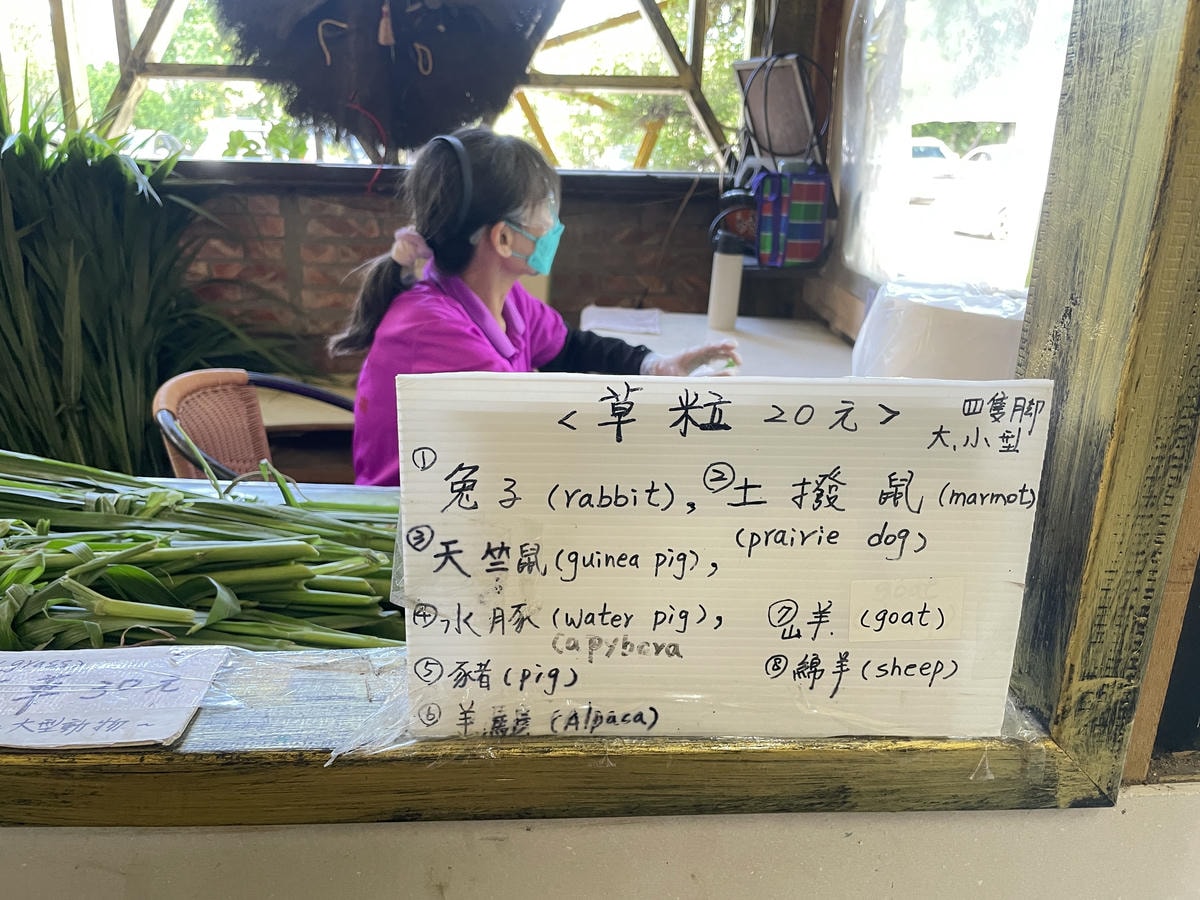 <草粒 20元> 四隻腳
大、小型
① 兔子 (rabbit), ② 土撥鼠 (marmot)
(prairie dog)
③ 天竺鼠 (guinea pig),
④ 水豚 (water pig), ⑦ 山羊 (goat)
Capybara
⑤ 豬 (pig) ⑧ 綿羊 (sheep)
⑥ 羊駝 (Alpaca)
草 30元
大型動物~